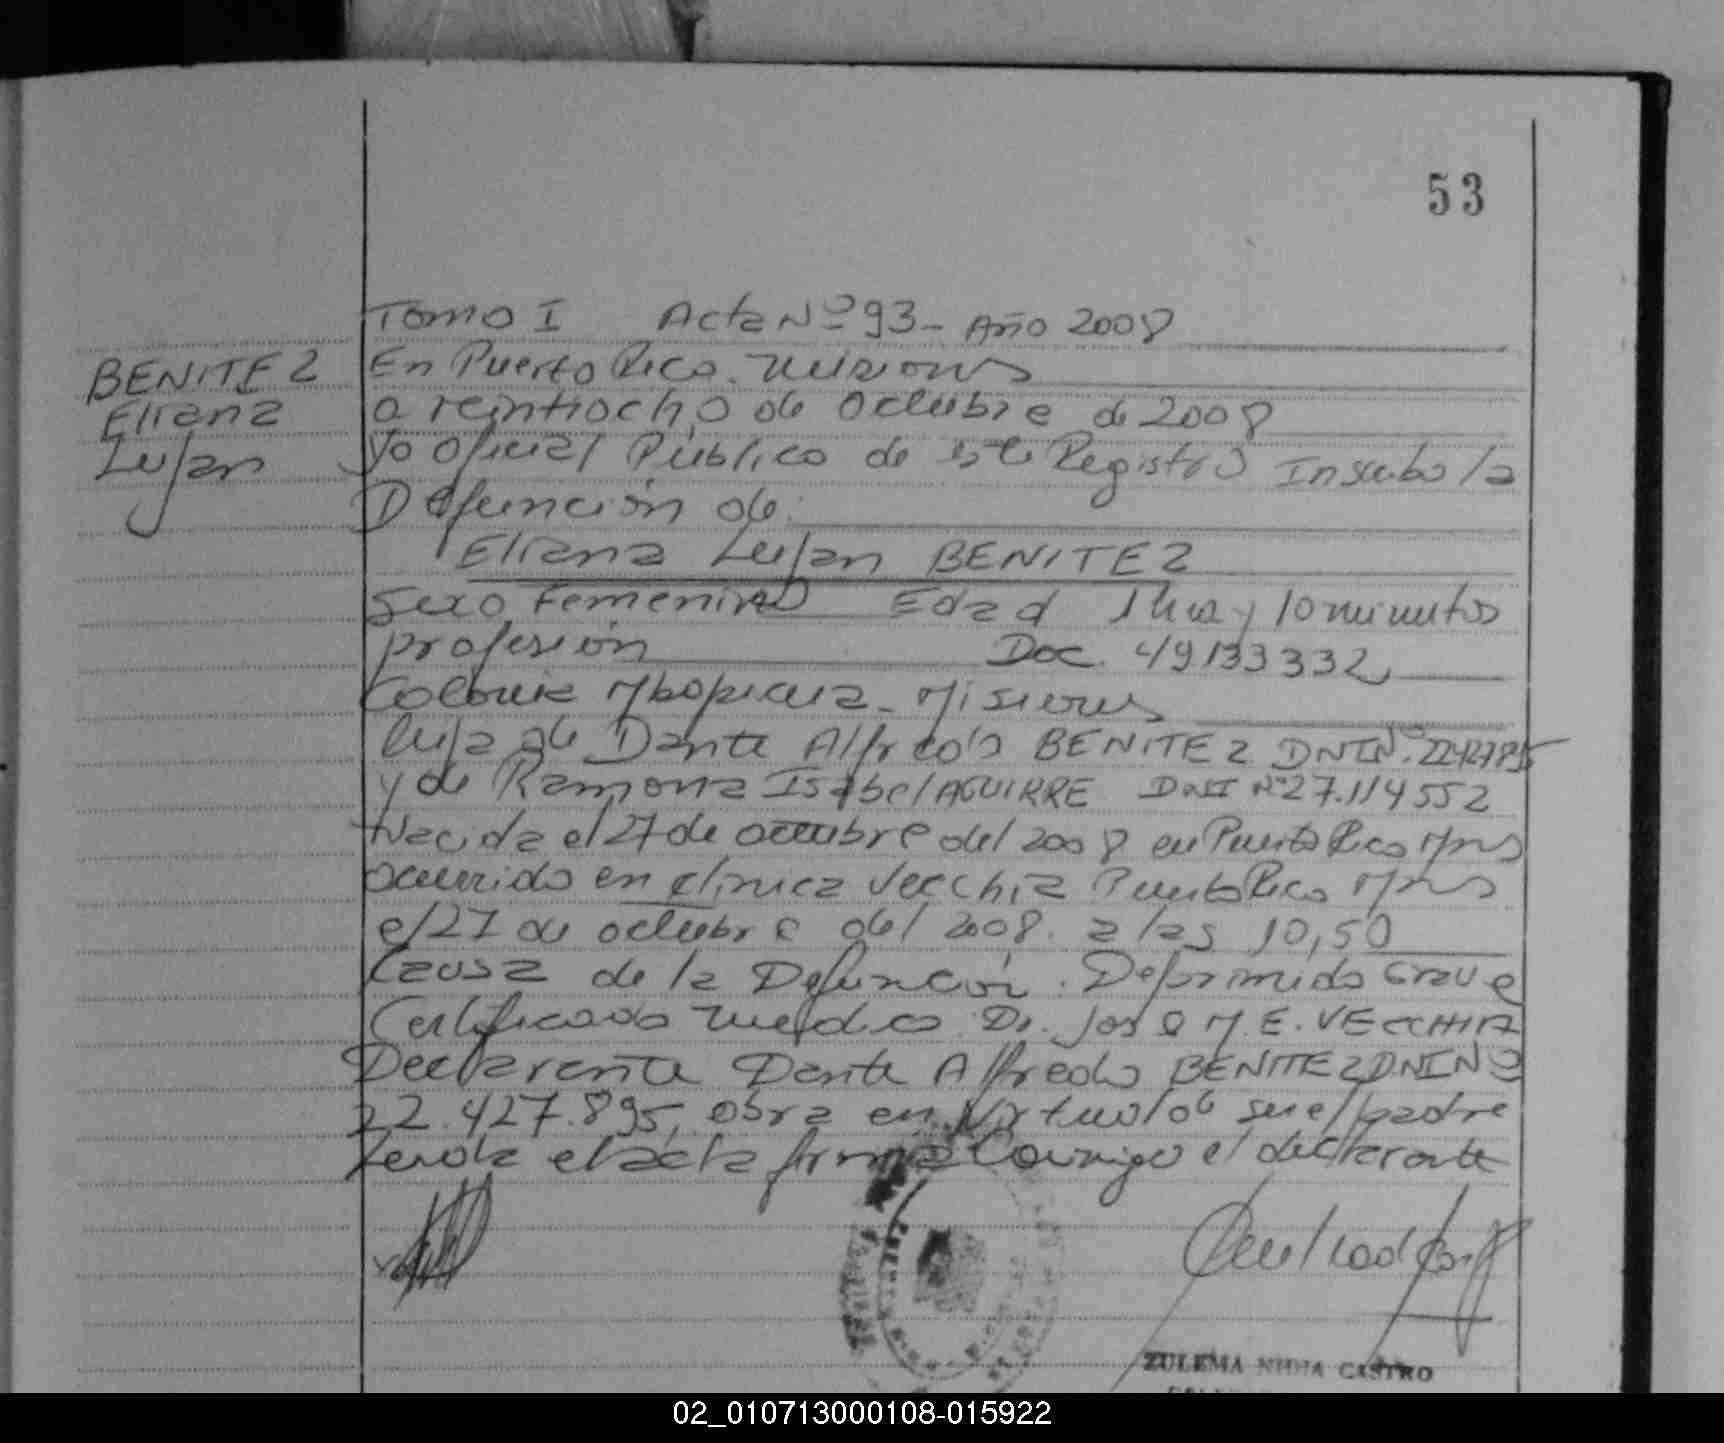 53
Tomo I Acta Nº 93- Año 2008
BENITEZ
Eliana
Lujan
En Puerto Rico. Misiones
a veintiocho de Octubre de 2008
yo oficial Público de este Registro Inscribo la
Defunción de:
Eliana Lujan BENITEZ
Sexo Femenino Edad 1 hora y 10 minutos
profesión Doc. 49133332
Colonia Mbopicua - Misiones
hija de Dante Alfredo BENITEZ DNI Nº
y de Ramona Isabel AGUIRRE DNI Nº 27.114552
Nacida el 27 de octubre del 2008 en Puerto Rico Mnes
ocurrido en clinica Vecchia Puerto Rico Mnes
el 27 de octubre del 2008. a las 10,50
Causa de la Defunción. Deprimido Grave
Certificado medico Dr. Jose M. E. VECCHIA
Declarante Dante Alfredo BENITEZ DNI Nº
22.427.895, obra en virtud de ser el padre
Leida el acta firma Conmigo el declarante
ZULEMA NINIA CASTRO
02_010713000108-015922